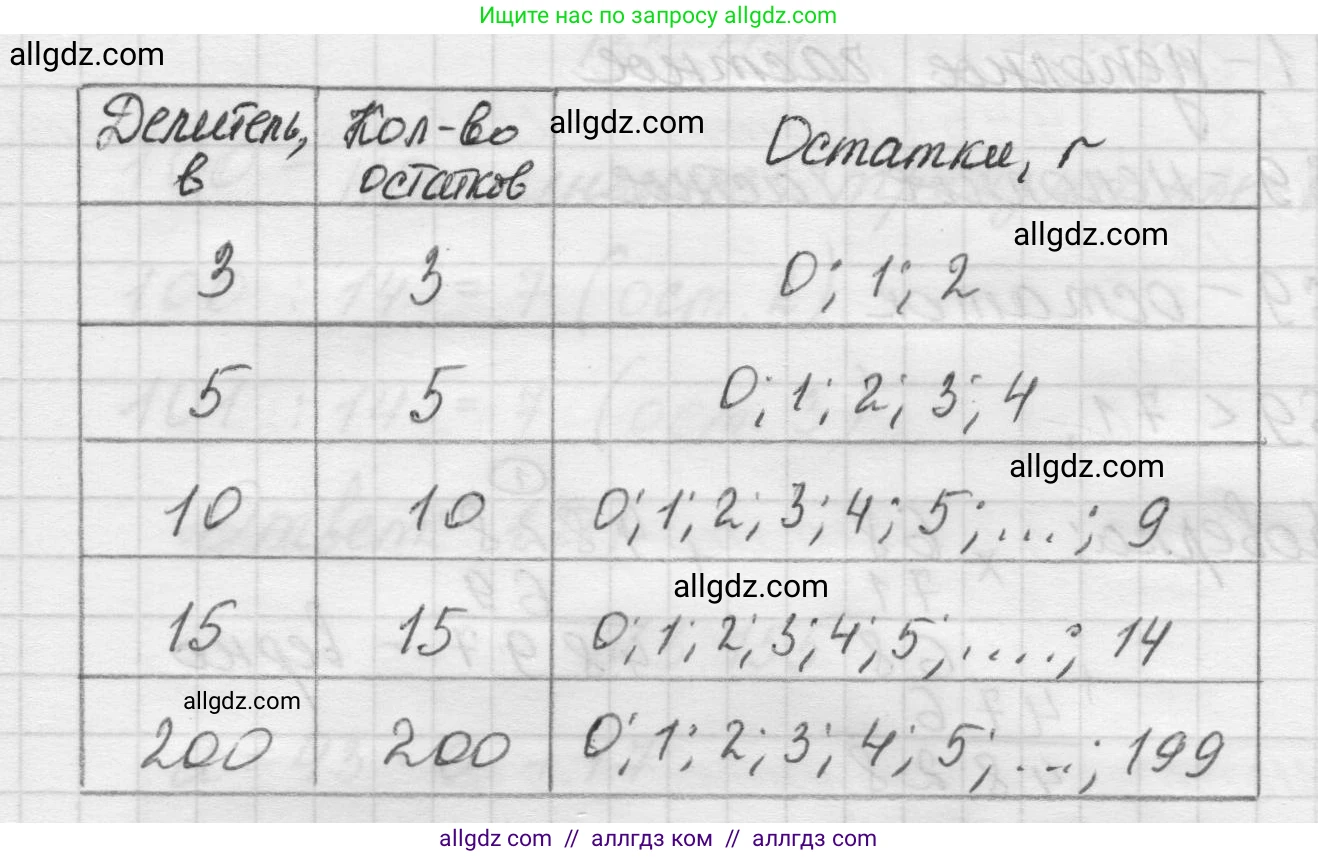 Ищите нас по запросу allgdz.com
allgdz.com
Делитель, в
Кол-во остатков
allgdz.com
Остатки, r
allgdz.com
3 3 0; 1; 2
5 5 0; 1; 2; 3; 4
allgdz.com
10 10 0; 1; 2; 3; 4; 5; ...; 9
allgdz.com
15 15 0; 1; 2; 3; 4; 5; ....; 14
allgdz.com
200 200 0; 1; 2; 3; 4; 5; ...; 199
allgdz.com // аллгдз ком // аллгдз com